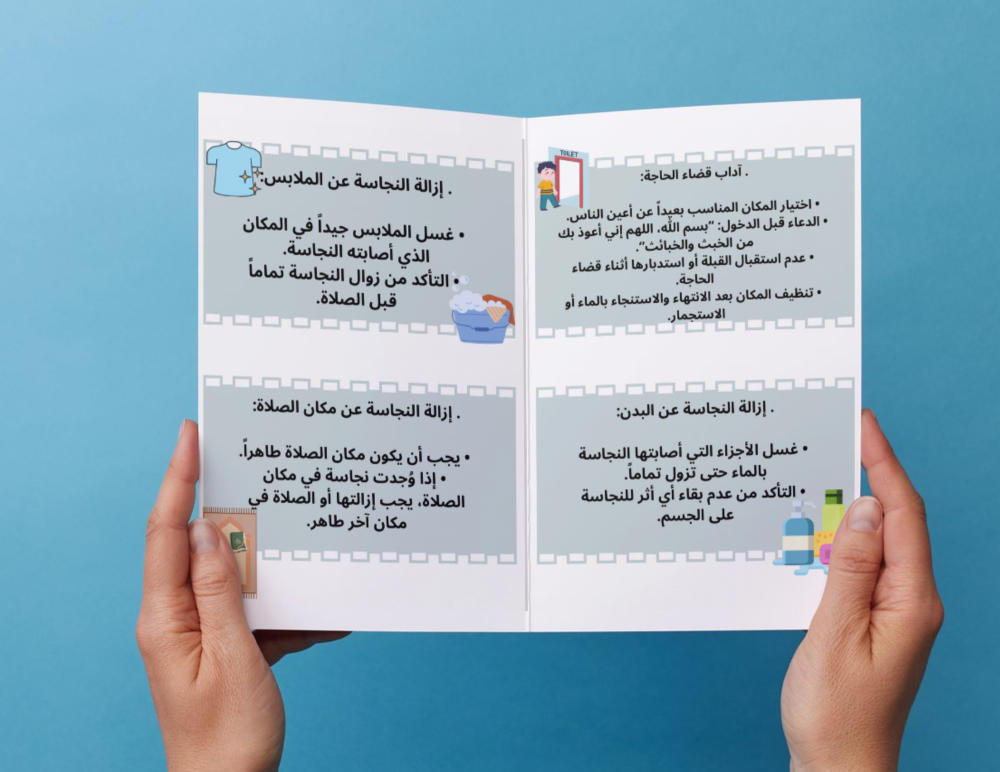 TOILET
. آداب قضاء الحاجة:
• اختيار المكان المناسب بعيداً عن أعين الناس.
• الدعاء قبل الدخول: “بسم الله، اللهم إني أعوذ بك
من الخبث والخبائث”.
• عدم استقبال القبلة أو استدبارها أثناء قضاء
الحاجة.
• تنظيف المكان بعد الانتهاء والاستنجاء بالماء أو
الاستجمار.
. إزالة النجاسة عن البدن:
• غسل الأجزاء التي أصابتها النجاسة
بالماء حتى تزول تماماً.
• التأكد من عدم بقاء أي أثر للنجاسة
على الجسم.
. إزالة النجاسة عن الملابس:
• غسل الملابس جيداً في المكان
الذي أصابته النجاسة.
• التأكد من زوال النجاسة تماماً
قبل الصلاة.
. إزالة النجاسة عن مكان الصلاة:
• يجب أن يكون مكان الصلاة طاهراً.
• إذا وُجدت نجاسة في مكان
الصلاة، يجب إزالتها أو الصلاة في
مكان آخر طاهر.